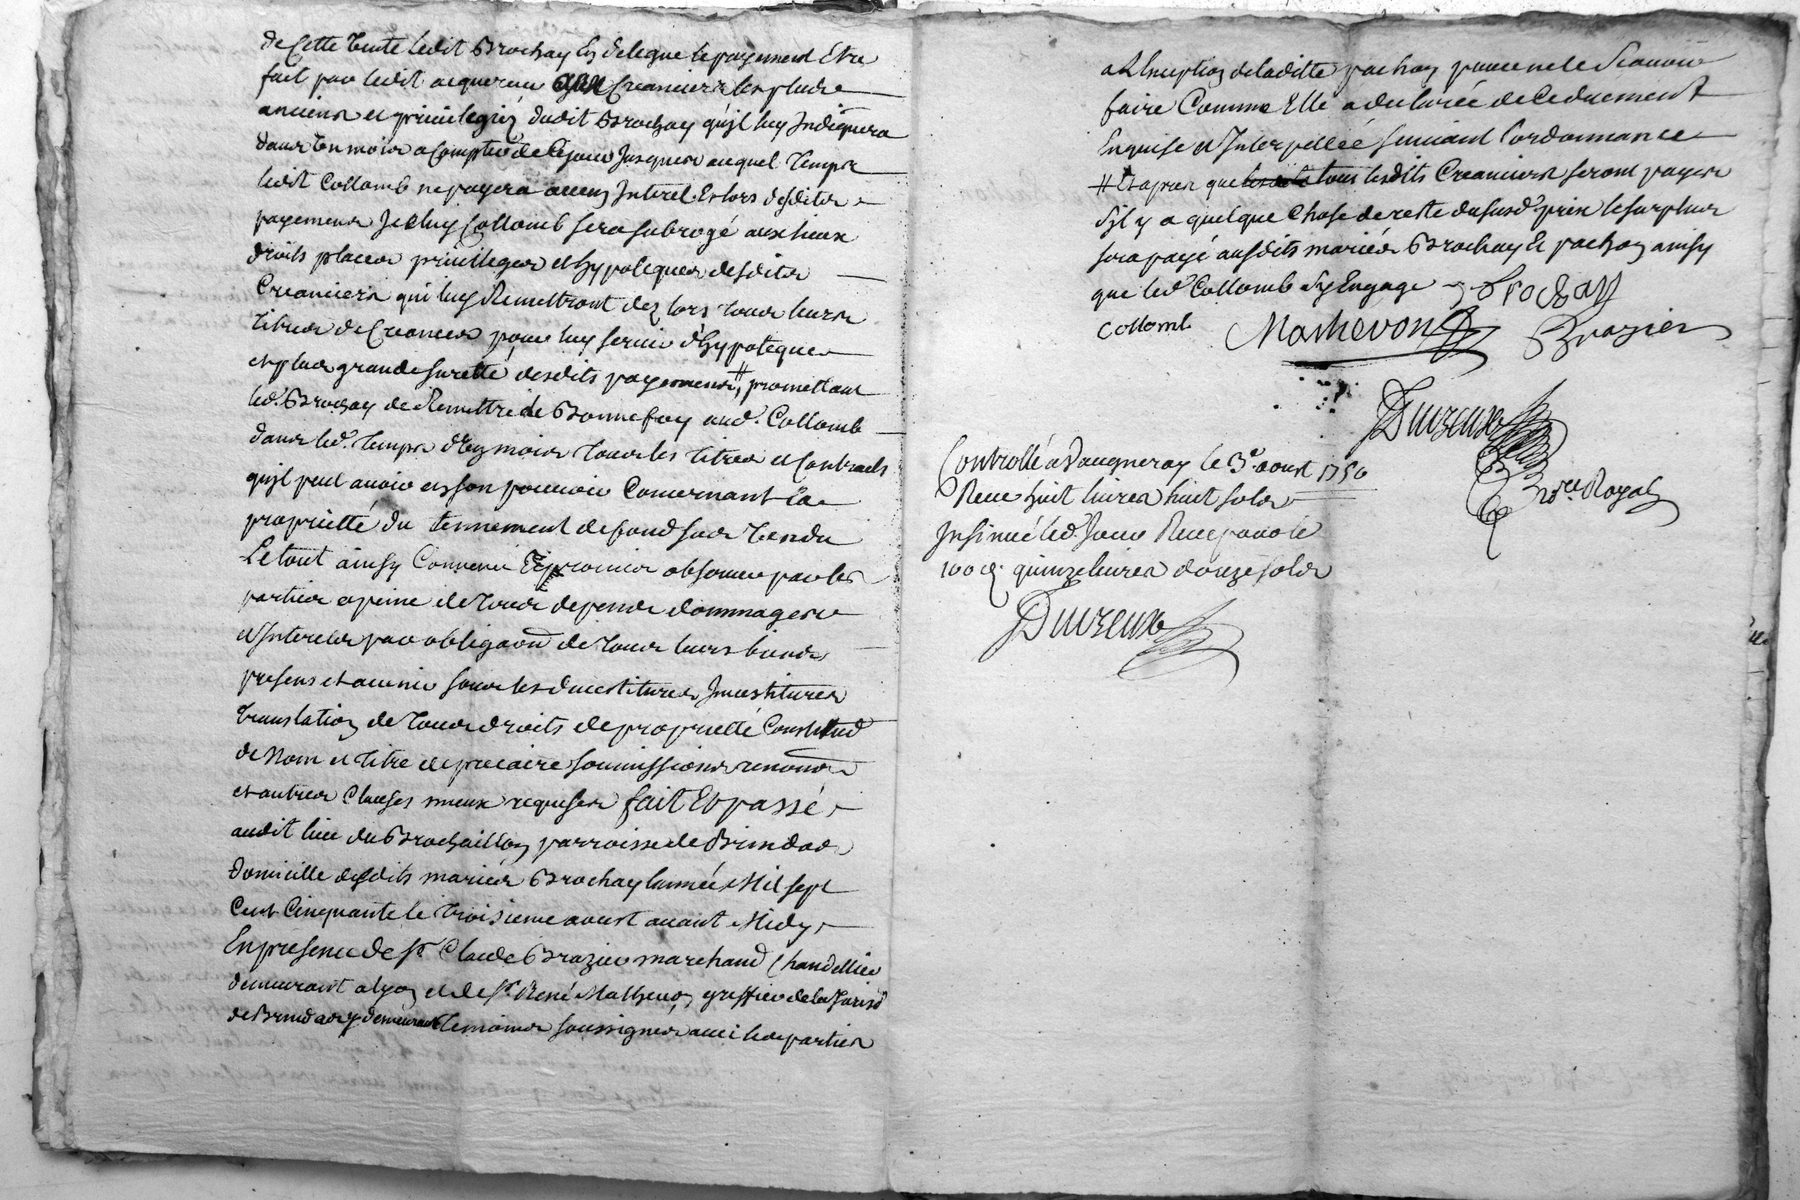 de Cette vente ledit Brochay En delegue le payement Etre
fait par ledit acquereur aux Creanciers les plus
anciens et privilegiéz dudit Brochay qu'jl luy Jndiquera
dans un mois a Compter de Cejour Jusques auquel temps
ledit Collomb ne payera aucun Jnteret Et lors desdits
payements Jceluy Collomb sera subrogé aux lieux
droits places privilleges et hypoteques desdits
Creanciers qui luy Remettront dez lors tous leurs
titres de Creances pour luy servir d'hypoteque
et plus grande suretté desdits payements # promettant
led. Brochay de Remettre de Bonne foy aud. Collomb
dans led. temps d'un mois tous les titres et Contracts
qu'jl peut avoir en son pouvoir Concernant la
proprietté du tennement de fond sus vendu
Le tout ainsy Convenu Et promis observer par les
parties a peine de tous depends dommages
et Jnterets par obligaon de tous leurs biens
presens et avenir sous les devestitures Jnvestitures
translation de tous droits de proprietté Constitud
de Nom et titre de precaire soumissions renonons
et autres Clauses mieux requises fait Et passé
audit lieu du Brochaillon parroisse de Brindas
domicille desdits mariés Brochay l'année Mil sept
Cent Cinquante le troisieme aoust avant Midy
En presence de sr. Claude Brazier marchand Chandellier
demeurant a lyon et de sr. René Mathevon greffier de la Jurisd
de Brindas y demeurant temoins soussignés avec les parties
a L'exception de laditte pachon pour ne le scavoir
faire Comme Elle a declarée de Ce duement
Enquise et Jnterpellée suivant l'ordonnance
# Et apres que tous lesdits Creanciers seront payés
s'jl y a quelque Chose de reste du susd. prix le surplus
sera payé ausdits mariés Brochay Et pachon ainsy
que led. Collomb s'y Engage Brochay
Collomb Mathevon Brazier
Duvzeux
Nore. Royal
Controllé a Vaugneray le 3e. aoust 1750
Receu huit livres huit sols
Jnsinué led. Jour Receu pour le
100e. quinze livres douze sols
Duvzeux